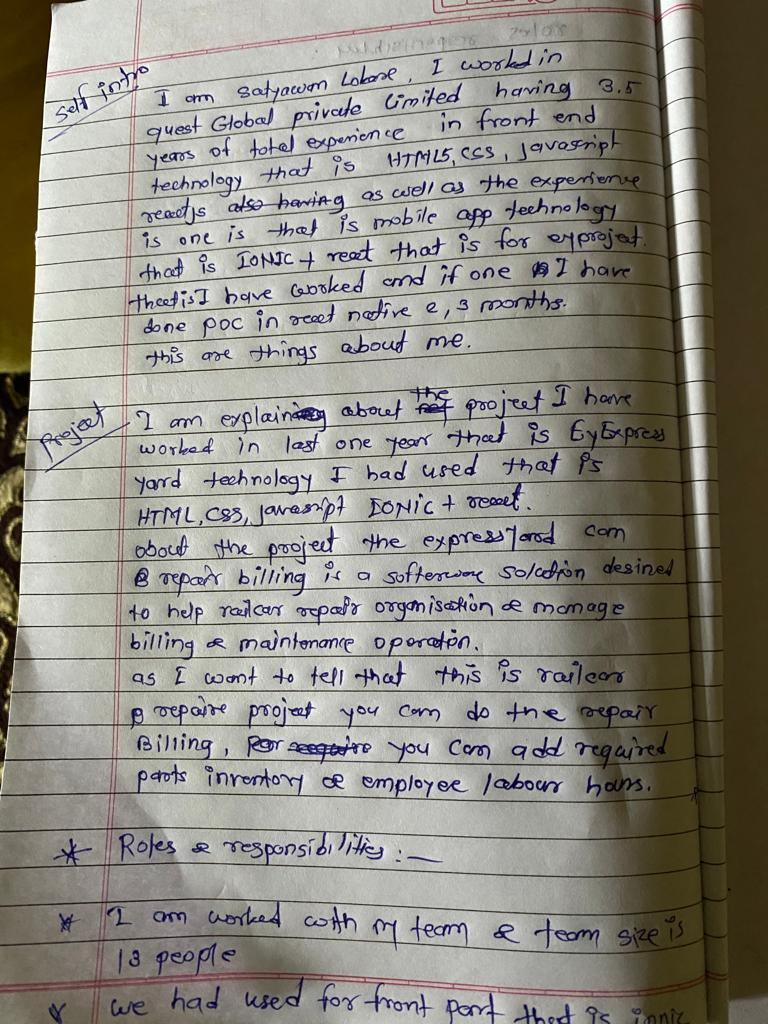 Self intro
I am Satyawan Lokare, I worked in
quest Global private limited having 3.5
years of total experience in front end
technology that is HTML5, CSS, javascript
reactjs also having as well as the experience
is one is that is mobile app technology
that is IONIC + react that is for eyproject.
that is I have worked and if one I have
done POC in react native 2, 3 months.
this are things about me.
Project
I am explaining about the project I have
worked in last one year that is EyExpress
yard technology I had used that is
HTML, CSS, javascript IONIC + react.
about the project the express yard can
repair billing is a softerware solution desined
to help railcar repair organisation & manage
billing & maintenance operation.
as I want to tell that this is railcar
repaire project you can do the repair
Billing, For require you can add required
parts inventory & employee labour hours.
* Roles & responsibilities :—
* I am worked with my team & team size is
13 people
* we had used for front part that is ionic